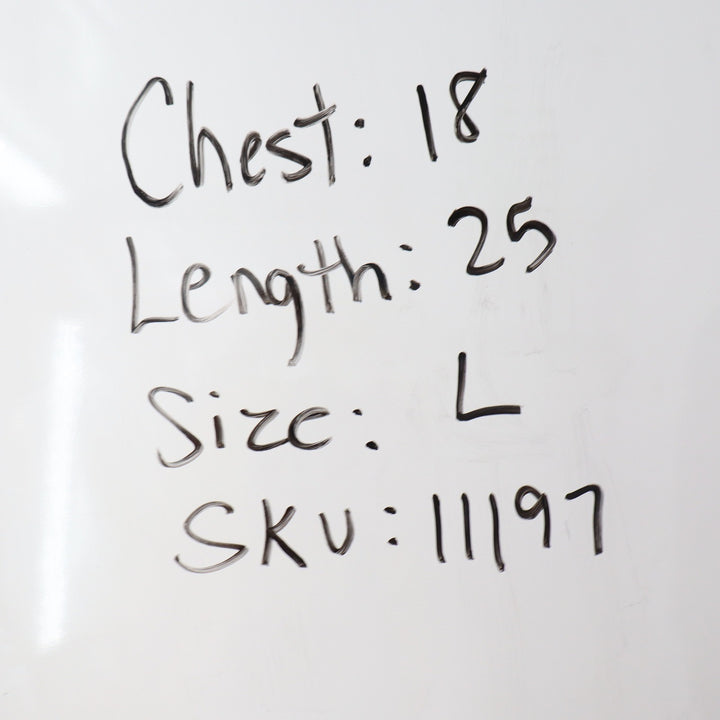 Chest: 18
Length: 25
Size: L
SKU: 11197